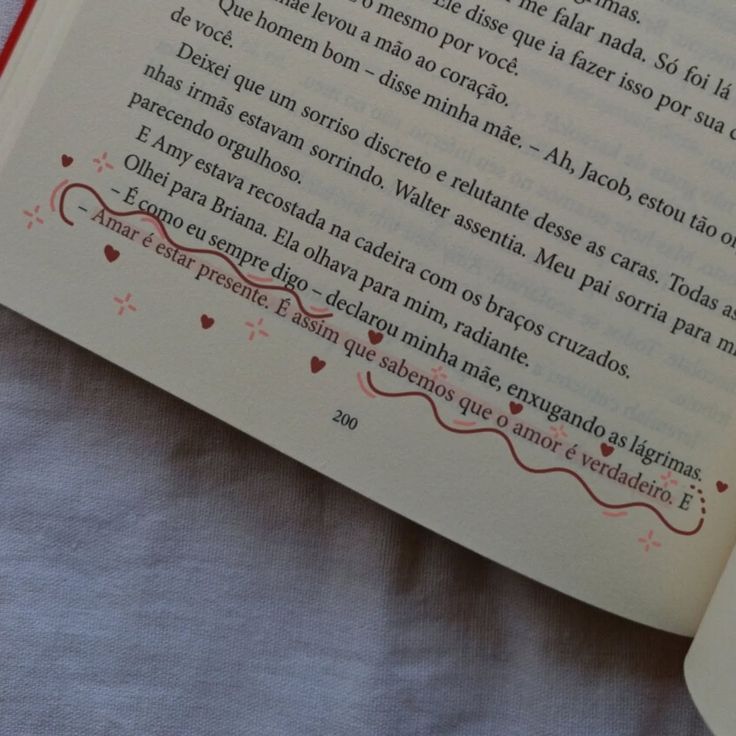 grimas.
me falar nada. Só foi lá
Ele disse que ia fazer isso por sua c
o mesmo por você.
mãe levou a mão ao coração.
Que homem bom – disse minha mãe. – Ah, Jacob, estou tão or
de você.
Deixei que um sorriso discreto e relutante desse as caras. Todas as
nhas irmãs estavam sorrindo. Walter assentia. Meu pai sorria para mi
parecendo orgulhoso.
E Amy estava recostada na cadeira com os braços cruzados.
Olhei para Briana. Ela olhava para mim, radiante.
– É como eu sempre digo – declarou minha mãe, enxugando as lágrimas.
– Amar é estar presente. É assim que sabemos que o amor é verdadeiro. E
200